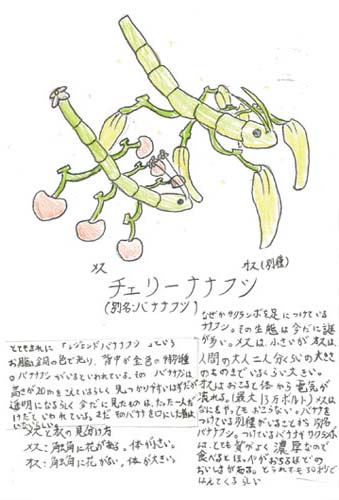 メス
オス(別種)
チェリーナナフシ
(別名:バナナフシ)
なぜかサクランボを足につけている
ナナフシ。その生態は今だに謎
が多い。メスは小さいが、オスは
人間の大人二人分くらいの大きさ
のものまでいるくらい大きい。
オスはおこると体から電気が
流れる。(最大13万ボルト)メスは
なにをやってもおこらない。バナナを
つけている別種がいることから別名
バナナフシ。つけているバナナやサクランボ
は、とても質がよく濃厚なので
食べるとほっぺがおちるほどの
おいしさがある。とられても30秒で
はえてくるらしい
とてもまれに「レジェンドバナナナフシ」という
お腹が銅の色で光り、背中が金色の特別種
のバナナフシがいるといわれている。そのバナナフシは
高さが20mをこえているらしく見つかりやすいはずだが
透明になるらしく今だに見たものは、たった一人だ
けだといわれている。まだそのバナナを口にした者は
いないらしい。
メスとオスの見分け方
メス:触角に花がある。体が小さい。
オス:触角に花がない。体が大きい